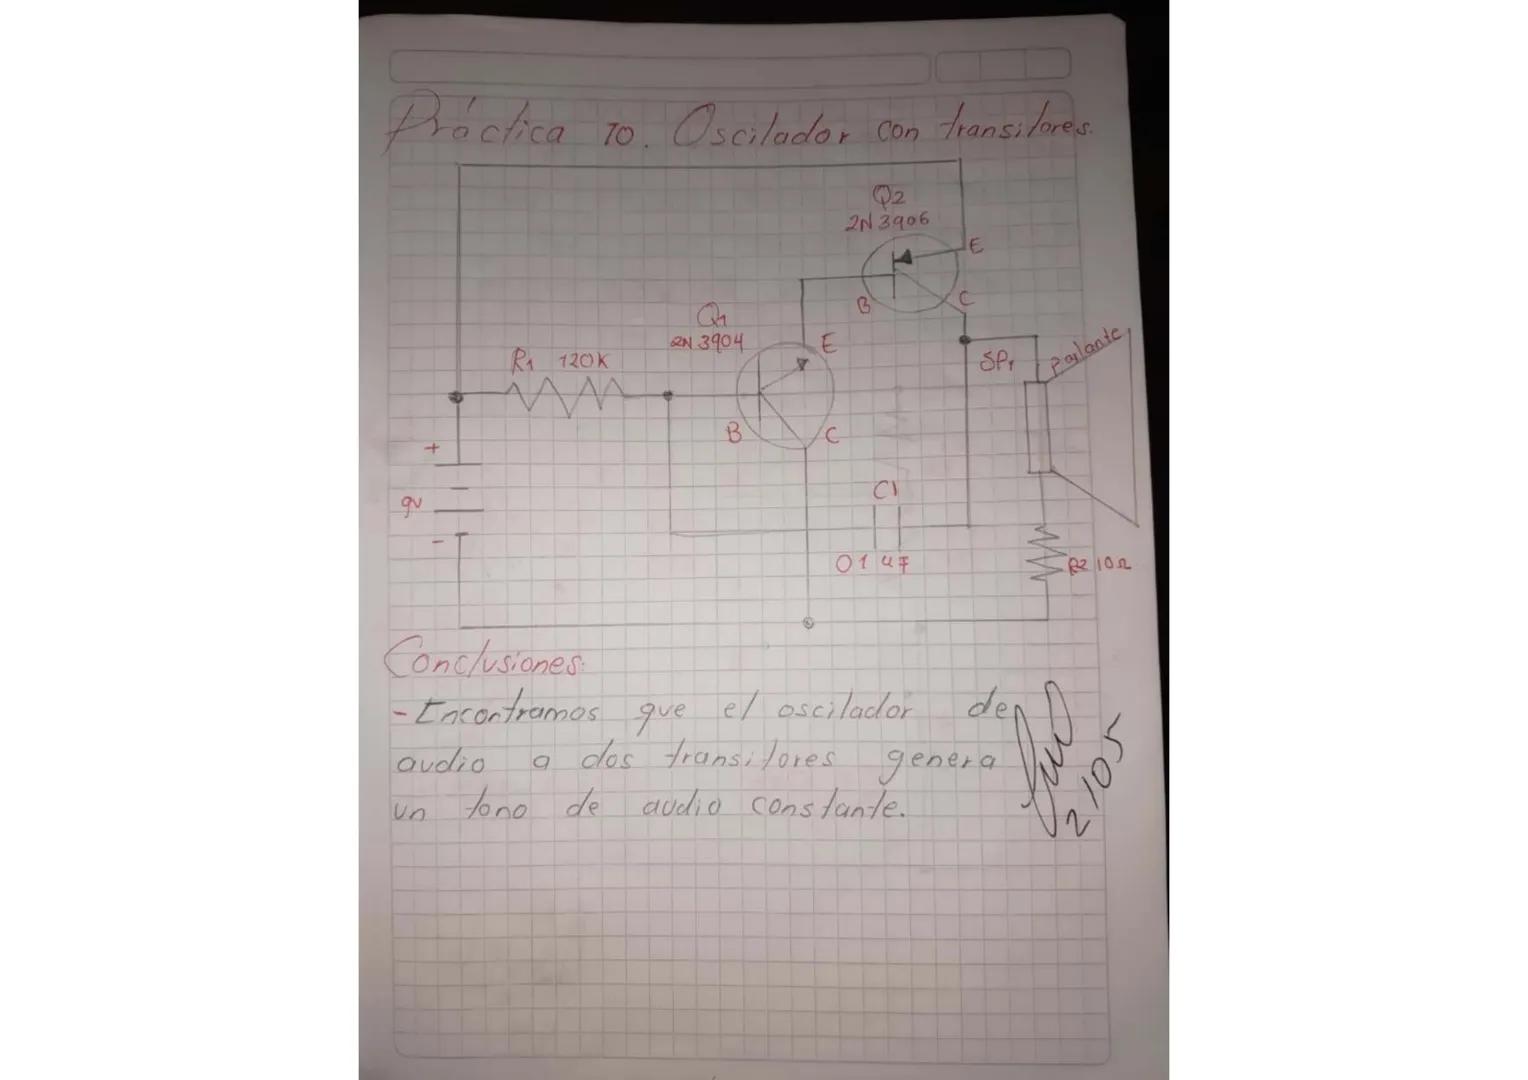 Práctica 10. Oscilador con transitores.
Q2
2N 3906
E
B
C
Q1
2N 3904
E
R1 120K
SP1 parlante
B
C
+
9v
-
C1
01 uF
R2 10Ω
Conclusiones:
- Encontramos que el oscilador de
audio a dos transitores genera
un tono de audio constante.
2105